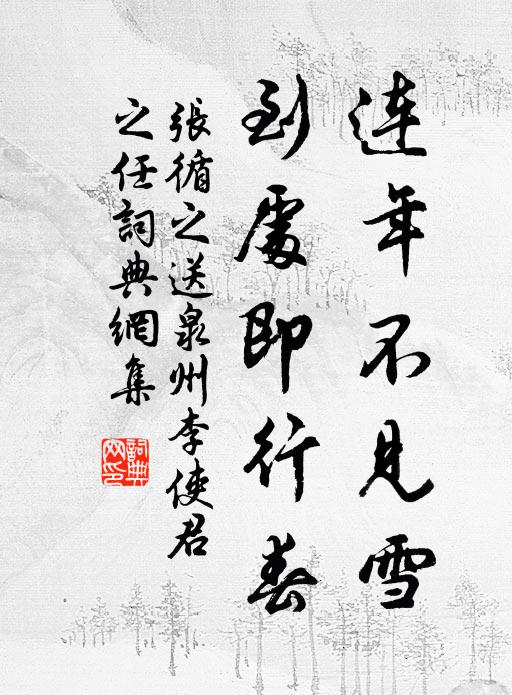 連年不見雪
到處即行春
張循之送泉州李使君
之任詞典網集
詞典网印